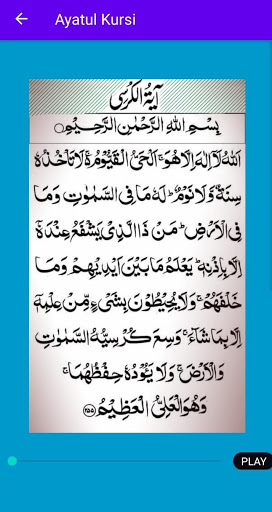 Ayatul Kursi
آيَةُ الْكُرْسِي
بِسْمِ اللهِ الرَّحْمٰنِ الرَّحِيْمِ
اَللهُ لَآ اِلٰهَ اِلَّا هُوَۚ اَلْحَىُّ الْقَيُّوْمُ ۚ لَا تَاْخُذُهٗ
سِنَةٌ وَّلَا نَوْمٌ ؕ لَهٗ مَا فِى السَّمٰوٰتِ وَمَا
فِى الْاَرْضِ ؕ مَنْ ذَا الَّذِىْ يَشْفَعُ عِنْدَهٗٓ
اِلَّا بِاِذْنِهٖ ؕ يَعْلَمُ مَا بَيْنَ اَيْدِيْهِمْ وَمَا
خَلْفَهُمْ ۚ وَلَا يُحِيْطُوْنَ بِشَىْءٍ مِّنْ عِلْمِهٖٓ
اِلَّا بِمَا شَآءَ ۚ وَسِعَ كُرْسِيُّهُ السَّمٰوٰتِ
وَالْاَرْضَ ۚ وَلَا يَئُوْدُهٗ حِفْظُهُمَا ۚ
وَهُوَ الْعَلِىُّ الْعَظِيْمُ ﴿۲۵۵﴾
PLAY